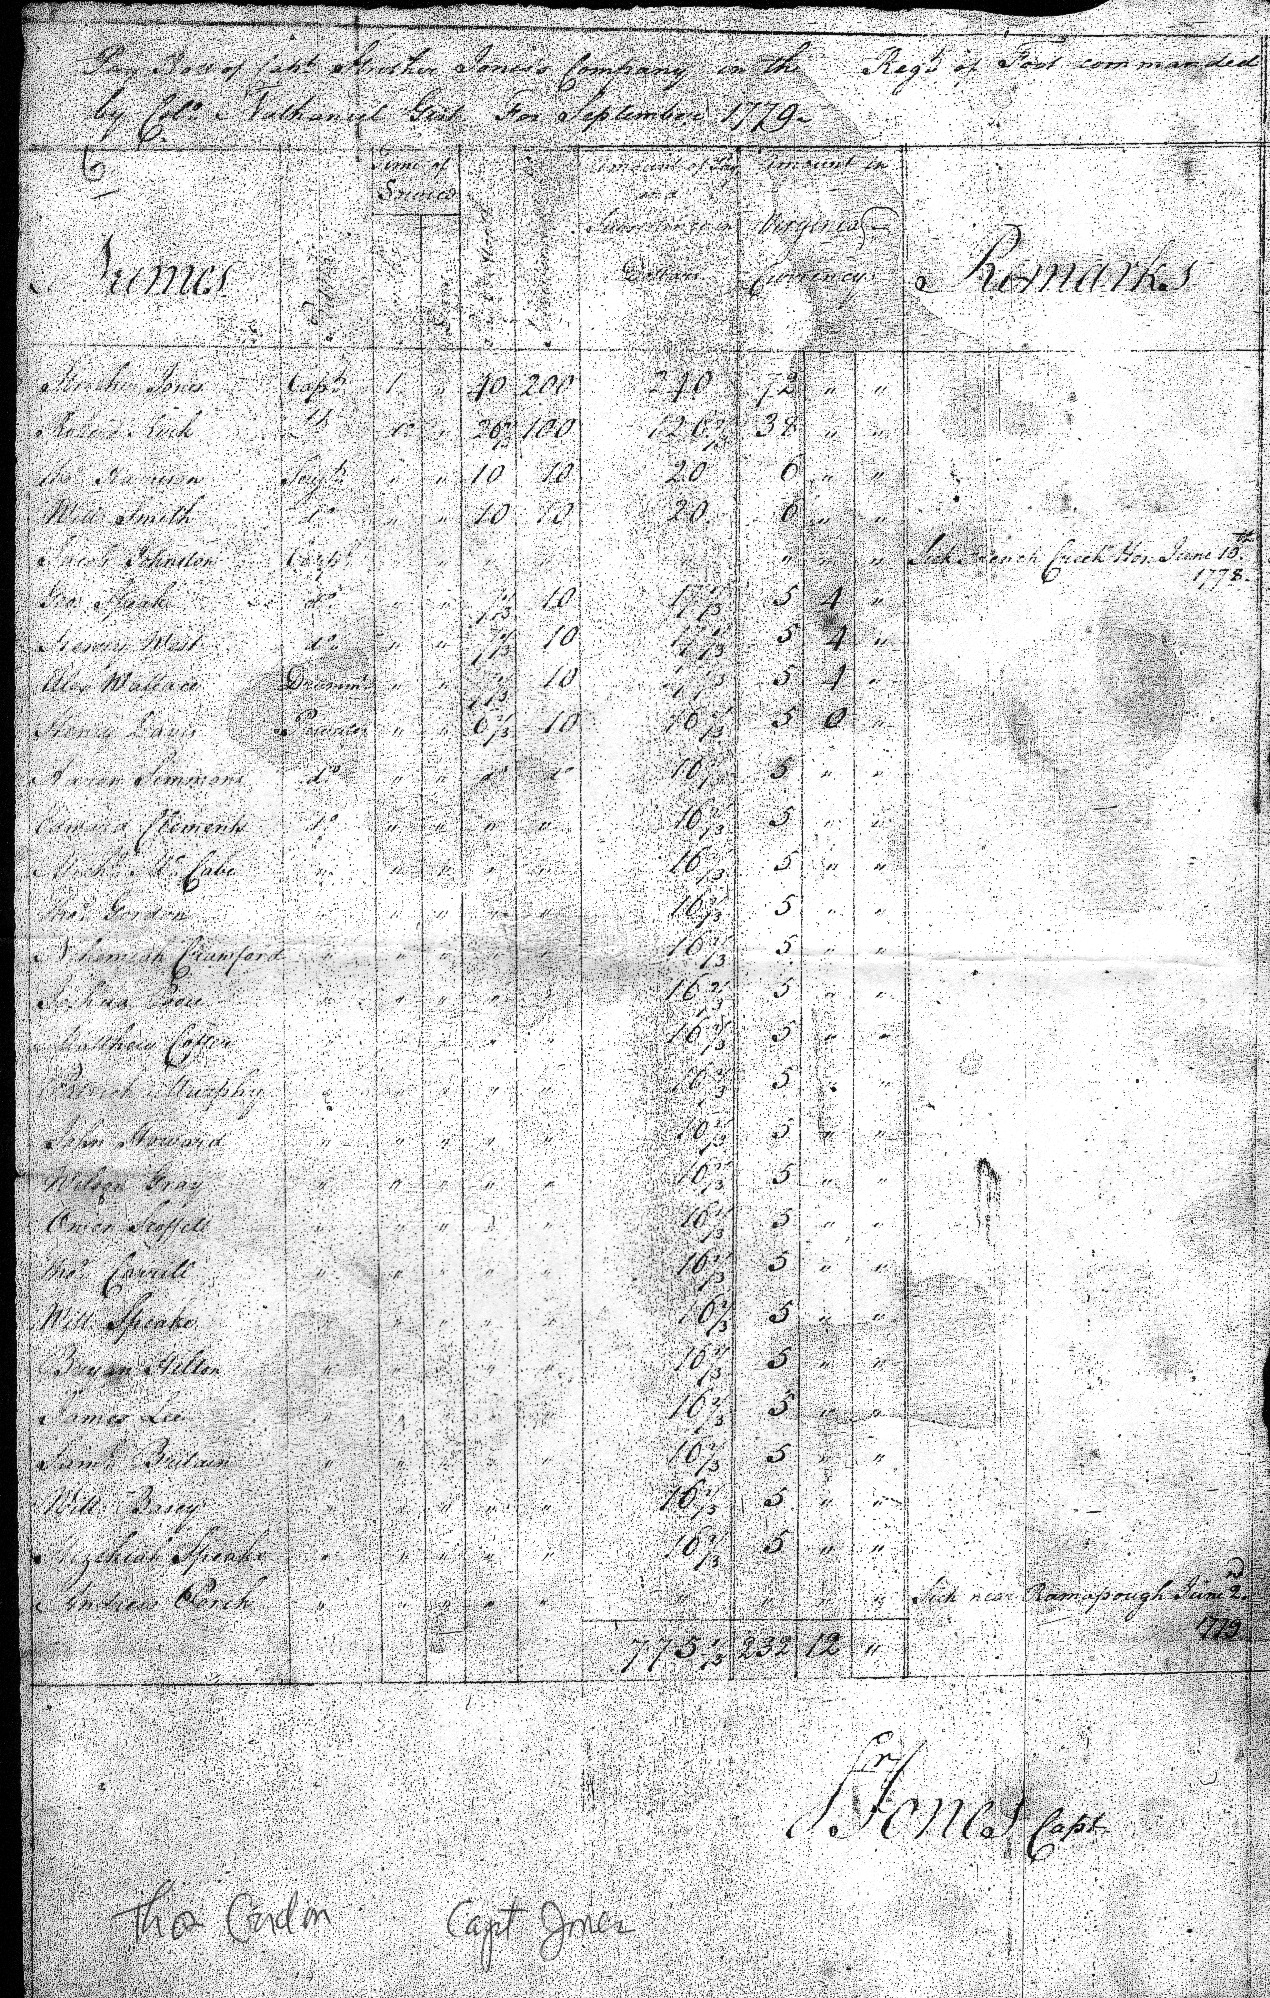 Pay Roll of Capt Strother Jones's Company in the Regt of Foot commanded
by Colo. Nathaniel Gist For September 1779
6
Names Time of Service Amount of Pay and Subsistence in Dollars Amount in Virginia Currency Remarks
Strother Jones Capt 1 " 40 200 240 72 " "
Lt 1 " 26 2/3 100 126 2/3 38 " "
Serjt " " 10 10 20 6 " "
Will Smith do " " 10 10 20 6 " "
Jacob Johnston Corpl " " " " " " " " Sick French Creek Hos. June 10th
1778.
Geo Speake do " " 7 1/3 10 17 1/3 5 4 "
Henry West do " " 7 1/3 10 17 1/3 5 4 "
Alex Wallace Drumr " " 7 1/3 10 17 1/3 5 4 "
Henry Davis Private " " 6 2/3 10 16 2/3 5 0 "
Aaron Simmons do " " do do 16 2/3 5 " "
Edward Clements do " " " " 16 2/3 5 " "
Michl McCabe " " " " " 16 2/3 5 " "
Thos Gordon " " " " " 16 2/3 5 " "
Nehemiah Crawford " " " " " 16 2/3 5 " "
Joshua " " " " " 16 2/3 5 " "
Matthew " " " " " 16 2/3 5 " "
Patrick Murphy " " " " " 16 2/3 5 " "
John Howard " " " " " 16 2/3 5 " "
Wilson Gray " " " " " 16 2/3 5 " "
Owen " " " " " 16 2/3 5 " "
Thos Carrill " " " " " 16 2/3 5 " "
Will Speake " " " " " 16 2/3 5 " "
Bryan Hilton " " " " " 16 2/3 5 " "
James Lee " " " " " 16 2/3 5 " "
Saml Britain " " " " " 16 2/3 5 " "
Will Basey " " " " " 16 2/3 5 " "
Hezekiah Speake " " " " " 16 2/3 5 " "
Andrew Porch " " " " " " " " " Sick near Ramapough June 2nd
1779
775 1/3 232 12 "
Sr Jones Capt
Thos Gordon Capt Jones